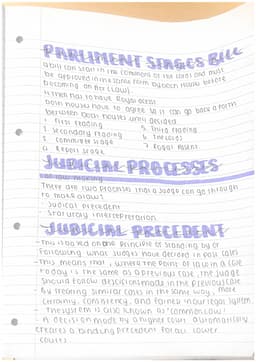 PARLIMENT STAGES BILL
a bill can start in the commons or the lords and must
be approved in the same form by both houses before
becoming an Act (Law).
it then has to have Royal Assent
both houses have to agree so it can go back & forth
between both houses until decided
1. first reading
5. third reading
2. secondary reading
6. the lords
3. committee stage
7. Royal Assent
4. Report stage
JUDICIAL PROCESSES
law making
There are two process that a Judge can go through
to make a law:
- Judicial precedent
- Statutory interpretation
JUDICIAL PRECEDENT
- This is based on the principle of standing by or
following what Judges have decided in past cases
- This means that, where the point of law in a case
today is the same as a previous case, the Judge
should follow decisions made in the previous case
- by treating similar cases in the same way, more
certainty, consistency, and fairness in our legal system,
- The system is also known as 'common law'
- A decision made by a higher court automatically
creates a binding precedent for all lower
courts